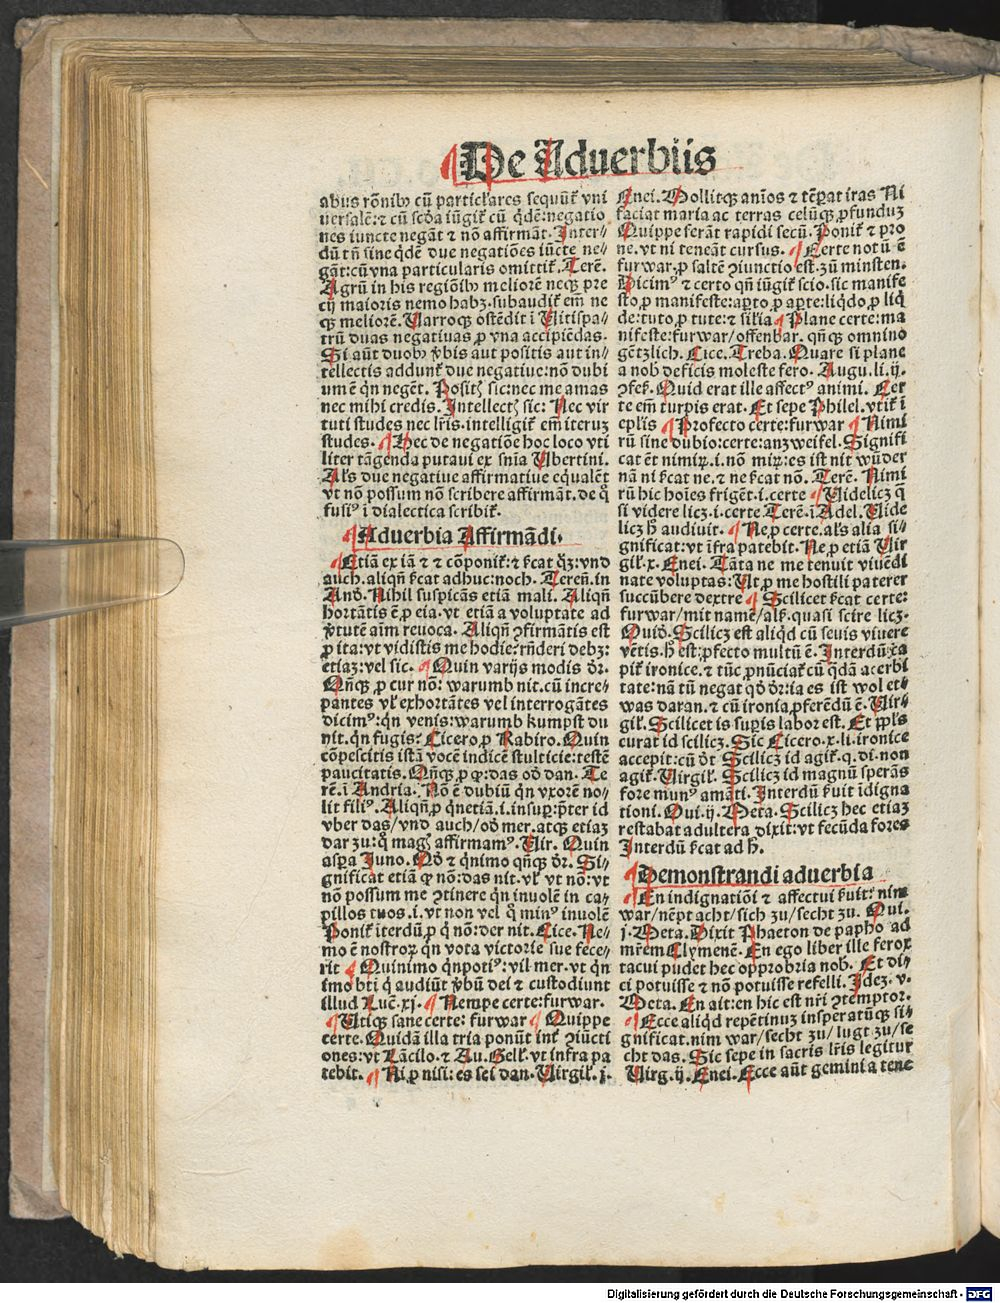 De Aduerbiis
abus rõnibꝫ cũ particłares sequũt᷑ vni
uersalẽ: ⁊ cũ scd̕a iũgit᷑ cũ q̃dẽ: negatio
nes iuncte negãt ⁊ nõ affirmãt. Inter⸗
dũ tñ sine q̃dẽ due negatiões iũcte ne⸗
gãt: cũ vna particularis omittit᷑. Terẽ.
Agrũ in his regiõibꝫ meliorẽ neqꝫ pre
cij maioris nemo habꝫ. subaudit᷑ em̃ ne
qꝫ meliorẽ. Varroqꝫ ostẽdit ĩ Vitispa⸗
trũ duas negatiuas ꝓ vna accipiẽdas.
Si aũt duobꝫ ṽbis aut positis aut in⸗
tellectis addunt᷑ due negatiue: nõ dubi
um ẽ qͥn negẽt. Positꝭ sic: nec me amas
nec mihi credis. Intellectꝭ sic: Nec vir
tuti studes nec lr̃is. intelligit᷑ em̃ iterũ
studes. ¶ Hec de negatiõe hoc loco vti
liter tãgenda putaui ex sñia Vbertini.
Al̕s due negatiue affirmatiue eq̃ualẽt
vt nõ possum nõ scribere affirmãt. de qͦ
fusiꝰ ĩ dialectica scribit᷑.
¶ Aduerbia Affirmãdi.
¶ Etiã ex iã ⁊ ⁊ cõponit᷑: ⁊ ſicat qꝫ: vnd
auch. aliqñ ſicat adhuc: noch. Tereñ. in
And̕. Nihil suspicãs etiã mali. Aliqñ
hortãtis ẽ ꝓ eia. vt etiã a voluptate ad
ṽtutẽ aĩm reuoca. Aliqñ ꝯfirmãtis est
ꝓ ita: vt vidistis me hodie: rñderi debꝫ:
etiaꝫ: vel sic. ¶ Quin varijs modis dr̃.
Qñqꝫ ꝓ cur nõ: warumb nit. cũ incre⸗
pantes vl̕ exhortãtes vel interrogãtes
dicimꝰ: qͥn venis: warumb kumpst du
nit. qͥn fugis? Cicero ꝓ Rabiro. Quin
cõpescitis istã vocẽ indicẽ stulticie: testẽ
paucitatis. Qñqꝫ ꝓ ꝙ: das od̕ dan. Te
rẽ. ĩ Andria. Nõ ẽ dubiũ qͥn vxorẽ no⸗
lit filiꝰ. Aliqñ ꝓ qͥnetiã. i. insuꝑ: p̃ter id
vber das/ vnd auch/ od̕ mer. atqꝫ etiaꝫ
dar zu: qͦ magꝭ affirmamꝰ. Vir. Quin
aspa Iuno. Qd̕ ⁊ qͥnimo qñqꝫ dr̃. Si⸗
gnificat etiã ꝙ nõ: das nit. vl̕ vt nõ: vt
nõ possum me ꝯtinere qͥn inuolẽ in ca⸗
pillos tuos. i. vt non vel qͦ minꝰ inuolẽ
Ponit᷑ iterdũ ꝓ qͥ nõ: der nit. Cice. Ne⸗
mo ẽ nostroꝝ qͥn vota victorie sue fece⸗
rit ¶ Quinimo qͥnpotiꝰ: vil mer. vt qͥn
ĩmo bti qͥ audiũt ṽbũ dei ⁊ custodiunt
illud Luc̃. xj. ¶ Nempe certe: furwar.
¶ Vtiqꝫ sane certe: furwar ¶ Quippe
certe. Quidã illa tria ponũt int̕ ꝯiũcti
ones: vt Lãcilo. ⁊ Au. Gell̕. vt infra pa
tebit. ¶ Ni ꝓ nisi: es sei dan. Virgil̕. j.
Enei. Mollitqꝫ aĩos ⁊ tẽꝑat iras Ni
faciat maria ac terras celũqꝫ ꝓfundũ
Quippe ferãt rapidi secũ. Ponit᷑ ⁊ pro
ne. vt ni teneãt cursus. ¶ Certe notũ ẽ
furwar. ꝓ saltẽ ꝯiunctio est. zũ minsten.
Dicimꝰ ⁊ certo qñ iũgit᷑ scio. sic manife
sto, ꝓ manifeste: aꝑto ꝓ aꝑte: liq̃do ꝓ liq̃
de: tuto ꝓ tute: ⁊ sil̕ia ¶ Plane certe: ma
nifeste: furwar/ offenbar. qñqꝫ omnino
gẽtzlich. Cice. Treba. Quare si plane
a nob deficis moleste fero. Augu. li. ij.
ꝯfeſ. Quid erat ille affectꝰ animi. Cer
te em̃ turpis erat. Et sepe Philel. vtit᷑ ĩ
ep̃lis ¶ Profecto certe: furwar ¶ Nimi
rũ sine dubio: certe: anzweifel. Signifi
cat ẽt nimiꝝ. i. nõ miꝝ: es ist nit wũder
nã ni ſicat ne. ⁊ ne ſicat nõ. Terẽ. Nimi
rũ hic hoĩes frigẽt. i. certe ¶ Videlicꝫ q̃
si videre licꝫ. i. certe Terẽ. ĩ Adel. Vide
licꝫ h̕ audiuit. ¶ Ne ꝓ certe. al̕s alia si⸗
gnificat: vt ĩfra patebit. Ne ꝓ etiã Vir
gil̕. x. Enei. Tãta ne me tenuit viuẽdi
nate voluptas: Ut ꝓ me hostili paterer
succũbere dextre ¶ Scilicet ſicat certe:
furwar/ mit namẽ/ alſ. quasi scire licꝫ.
Ouid̕. Scilicꝫ est aliq̃d cũ seuis viuere
vẽtis. h̕ est: ꝓfecto multũ ẽ. Interdũ ca
pit᷑ ironice. ⁊ tũc ꝓnũciat᷑ cũ q̃dã acerbi
tate: nã tũ negat qd̕ dr̃: ia es ist wol et⸗
was daran. ⁊ cũ ironia ꝓferẽdũ ẽ. Vir⸗
gil̕. Scilicet is suꝑis labor est. Et pp̃ls
curat id scilicꝫ. Sic Cicero. x. li. ironice
accepit: cũ dr̃ Scilicꝫ id agit᷑. q. di. non
agit᷑. Virgil̕. Scilicꝫ id magnũ sperãs
fore munꝰ amãti. Interdũ ſuit ĩdigna
tioni. Oui. ij. Meta. Scilicꝫ hec etiaꝫ
restabat adultera dixit: vt fecũda fores
Interdũ ſicat ad h̕.
¶ Demonstrandi aduerbia
¶ En indignatiõi ⁊ affectui ſuit: nim
war/ nẽpt acht/ sich zu/ secht zu. Oui.
j. Meta. Dixit Phaeton de papho ad
mr̃em Clymenẽ. En ego liber ille ferox
tacui pudet hec opprobria nob. Et di⸗
ci potuisse ⁊ nõ potuisse refelli. Idẽ. v.
Meta. En ait: en hic est nr̃i ꝯtemptor.
¶ Ecce aliq̃d repẽtinuꝫ insperatũqꝫ si⸗
gnificat. nim war/ secht zu/ lugt zu/ se
cht das. Sic sepe in sacris lr̃is legitur
Virg. ij. Enei. Ecce aũt gemini a tene
Digitalisierung gefördert durch die Deutsche Forschungsgemeinschaft - DFG